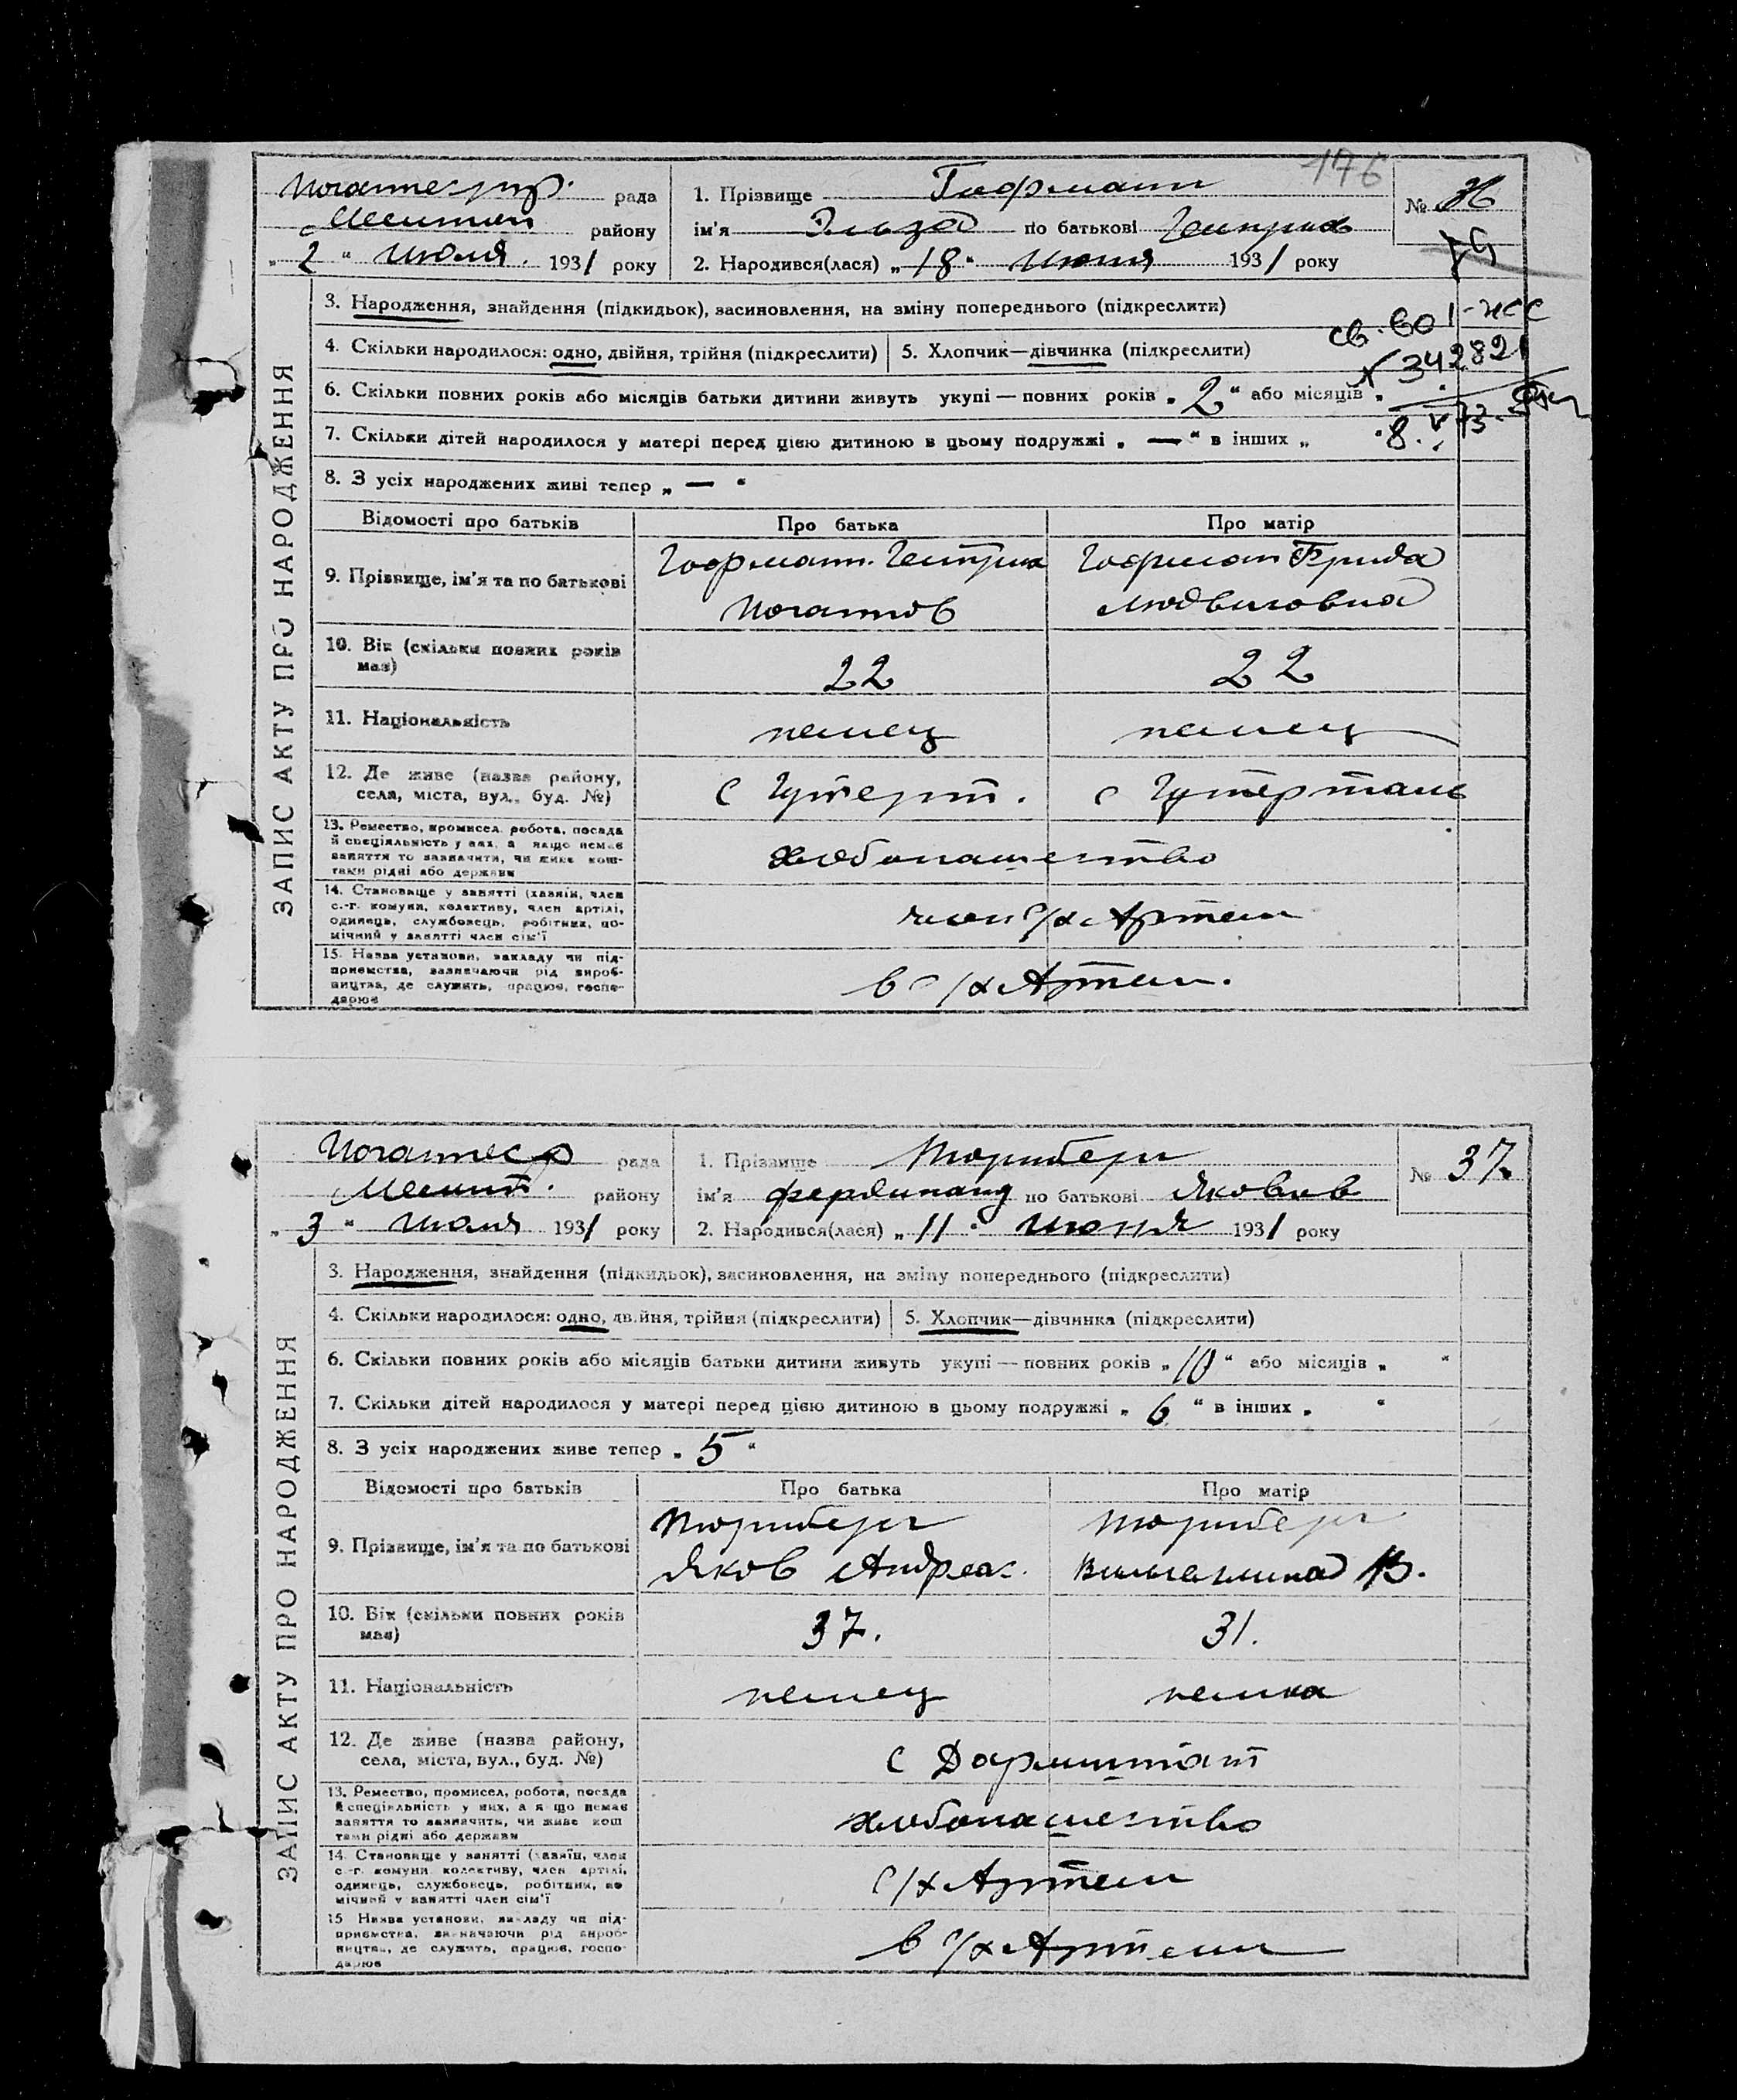 176
рада
1. Прізвище Гофманн
№
району
ім'я Эльза по батькові Генрихов
„2“ июля. 1931 року
2. Народився(лася) „18“ июня 1931 року
ЗАПИС АКТУ ПРО НАРОДЖЕННЯ
3. Народження, знайдення (підкидьок), засиновлення, на зміну попереднього (підкреслити)
4. Скільки народилося: одно, двійня, трійня (підкреслити)
5. Хлопчик—дівчинка (підкреслити)
св. во I-жс
№ 342821
6. Скільки повних років або місяців батьки дитини живуть укупі — повних років „2“ або місяців „
8. V 73.
7. Скільки дітей народилося у матері перед цією дитиною в цьому подружжі „—“ в інших „
8. З усіх народжених живі тепер „—“
Відомості про батьків
Про батька
Про матір
9. Прізвище, ім'я та по батькові
Гофманн. Генрих
Иоганнов
Гофман Фрида
Людвиговна
10. Вік (скільки повних років має)
22
22
11. Національність
немец
немец
12. Де живе (назва району, села, міста, вул., буд. №)
с Гутерт.
с Гутерталь
13. Ремество, промисел, робота, посада й спеціяльність у них, а якщо немає заняття то зазначити, чи живе коштами рідні або держави
хлебопашество
14. Становище у занятті (хазяїн, член с.-г. комуни, колективу, член артілі, одинець, службовець, робітник, помічний у занятті член сім'ї
член с/х Артели
15. Назва установи, закладу чи підприємства, зазначаючи рід виробництва, де служить, працює, господарює
в с/х Артели.
рада
1. Прізвище Тюрнберг
№ 37.
району
ім'я Фердинанд по батькові Яковлев
„3“ июля 1931 року
2. Народився(лася) „11“ июня 1931 року
ЗАПИС АКТУ ПРО НАРОДЖЕННЯ
3. Народження, знайдення (підкидьок), засиновлення, на зміну попереднього (підкреслити)
4. Скільки народилося: одно, двійня, трійня (підкреслити)
5. Хлопчик—дівчинка (підкреслити)
6. Скільки повних років або місяців батьки дитини живуть укупі — повних років „10“ або місяців „ “
7. Скільки дітей народилося у матері перед цією дитиною в цьому подружжі „6“ в інших „ “
8. З усіх народжених живе тепер „5“
Відомості про батьків
Про батька
Про матір
9. Прізвище, ім'я та по батькові
Тюрнберг
Яков Андреас.
Тюрнберг
Вильгельмина В.
10. Вік (скільки повних років має)
37.
31.
11. Національність
немец
немка
12. Де живе (назва району, села, міста, вул., буд. №)
с Дармштат
13. Ремество, промисел, робота, посада й спеціяльність у них, а якщо немає заняття то зазначить, чи живе коштами рідні або держави
хлебопашество
14. Становище у занятті (хазяїн, член с.-г. комуни, колективу, член артілі, одинець, службовець, робітник, помічний у занятті член сім'ї
с/х Артели
15. Назва установи, закладу чи підприємства, зазначаючи рід виробництва, де служить, працює, господарює
в с/х Артели